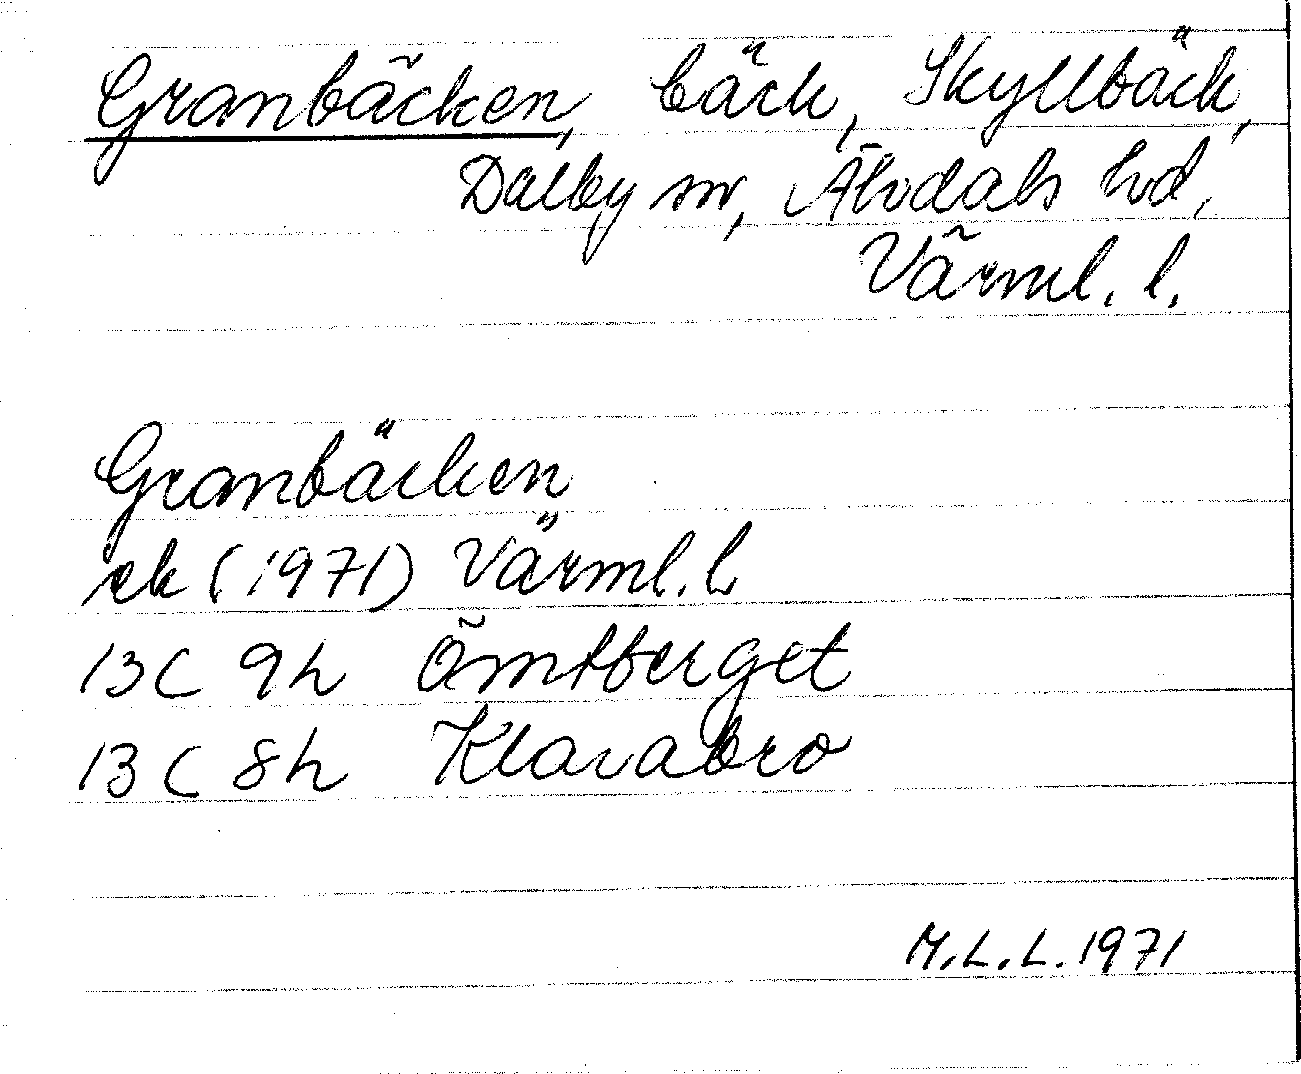 Granbäcken, bäck, Skyllbäck,
Dalby sn, Älvdals hd,
Värml. l.
Granbäcken
ek (1971) Värml. l.
13C 9h Ömtberget
13C 8h Klarabro
M.L.L. 1971